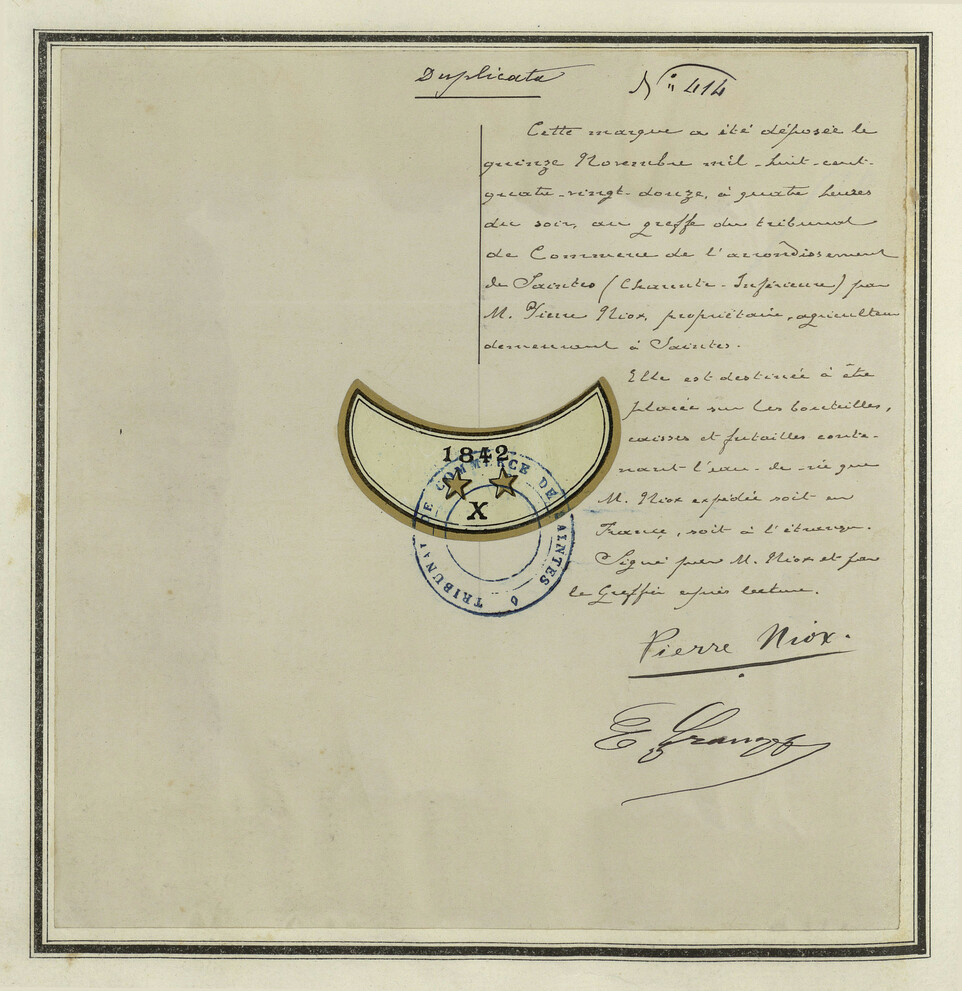 Duplicata
N° 414
Cette marque a été déposée le
quinze Novembre mil-huit-cent-
quatre-vingt-douze, à quatre heures
du soir, au greffe du tribunal
de Commerce de l'arrondissement
de Saintes (Charente-Inférieure) par
M. Pierre Niox, propriétaire, agriculteur
demeurant à Saintes.
Elle est destinée à être
placée sur les bouteilles,
caisses et futailles conte-
nant l'eau-de-vie que
M. Niox expédie soit en
France, soit à l'étranger.
Signé par M. Niox et par
le Greffier après lecture.
1842
X
TRIBUNAL DE COMMERCE DE SAINTES
Pierre Niox.
E.